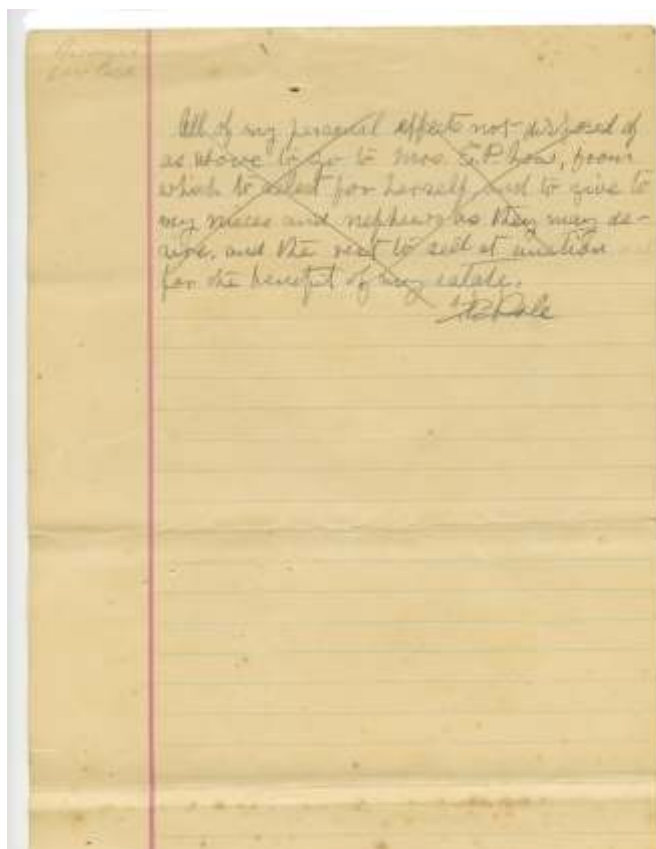 All of my personal effects not disposed of
as above to go to Mrs. E.P. Low, from
which to select for herself and to give to
my nieces and nephews as they may de-
sire, and the rest to sell at auction
for the benefit of my estate.
Dole